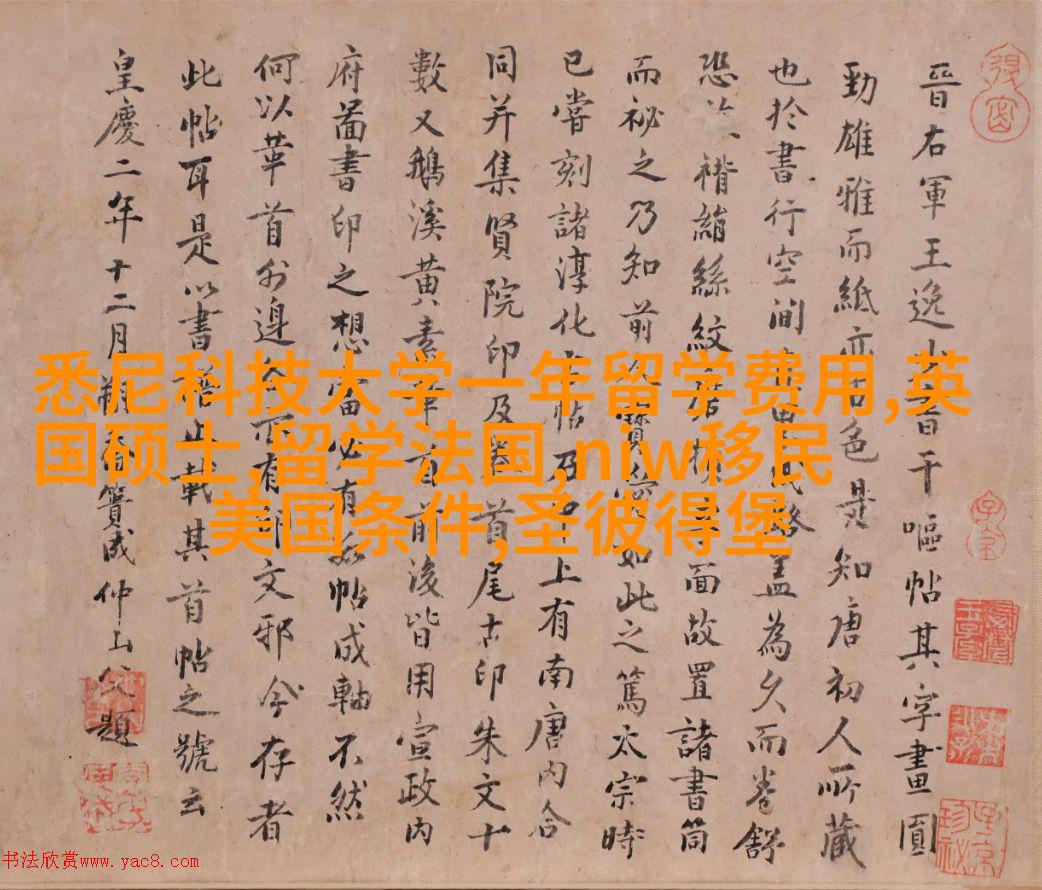 悉尼科技大学一年留学费用,英
国硕士,留学法国,niw移民
美国条件,圣彼得堡
晉右軍王逸少昔干嘔帖其字畫圓
勁雄雅而紙亦古色是知唐初人所藏
也於書行空間民略蓋為久而卷舒
恐褙絹絲紋面故置諸書筒
而祕之乃知前如此之篤太宗時
已嘗刻諸淳化帖上有南唐內合
同并集賢院印及首尾古印朱文十
數又鵝溪黃素首前後皆用宣政內
府圖書印之想當必有帖成軸不然
何以華首外邊有文邪今存者
此帖耳是以書載其首帖之號云
皇慶二年十二月朔簣成仲山父題
书法欣赏www.yac8.com